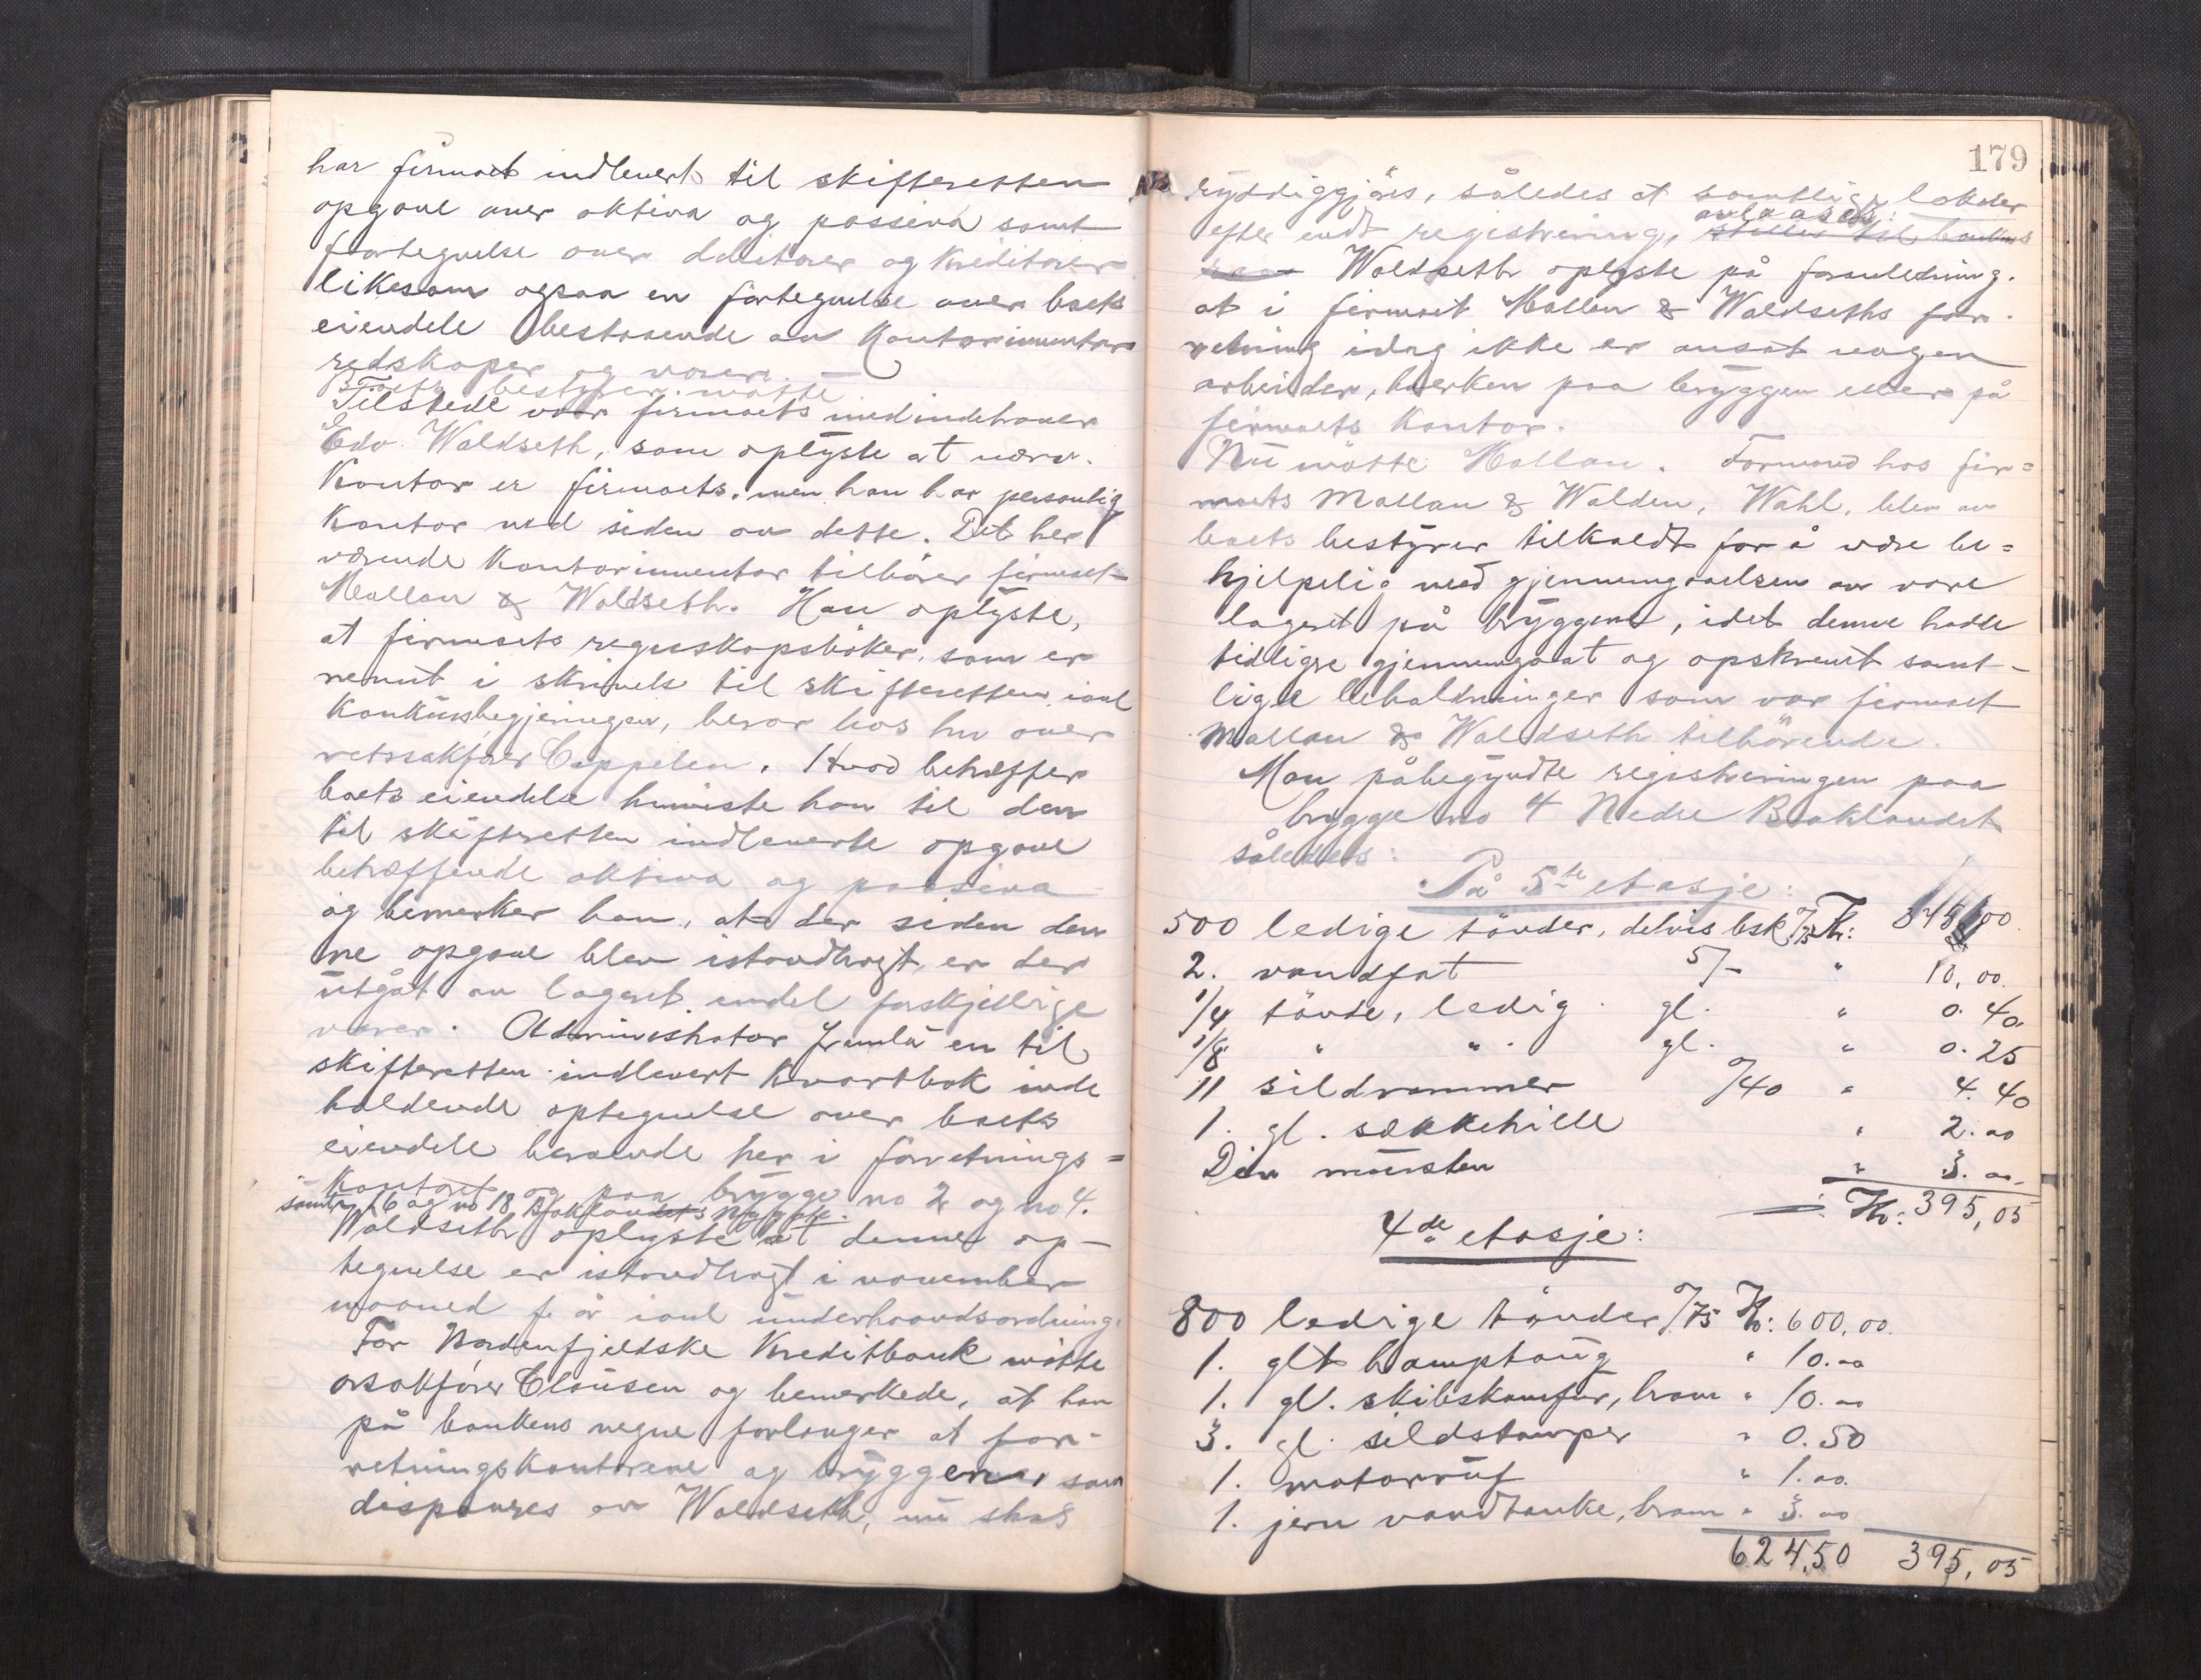 har firmaet indlevert til skifteretten
opgave over aktiva og passiva samt
fortegnelse over debitorer og kreditorer
likesom ogsaa en fortegnelse over boets
eiendele bestaaende av kontorinventar
redskaper og varer.
Boets bestyrer møtte
Tilstede var firmaets medindehaver
Edv. Waldseth, som oplyste at nærv.
kontor er firmaets, men han har personlig
kontor ved siden av dette. Det her
værende kontorinventar tilhører firmaet
Mallan & Waldseth. Han oplyste,
at firmaets regnskapsbøker, som er
nevnt i skrivelse til skifteretten
konkursbegjeringen, beror hos hr over
retssakfører Cappelen. Hvad betræffer
boets eiendele henviste han til den
til skifteretten indleverte opgave
betræffende aktiva og passiva
og bemerker han, at der siden den
ne opgave blev istandbragt, er der
utgåt av lageret endel forskjellige
varer. Administrator fremla en til
skifteretten indlevert kvartbok inde
holdende optegnelse over boets
eiendele beroende her i forretnings=
kontoret og paa brygge no 2 og no 4.
samt 16 og no 18 Baklandets
Waldseth oplyste at denne op-
tegnelse er istandbragt i november
maaned f. år underhaandsordning.
For Nordenfjeldske Kreditbank møtte
orsakfører Clausen og bemerkede, at han
på bankens vegne forlanger at for-
retningskontorene og bryggene, som
disponres av Waldseth, nu skal
179
ryddiggjøres, således at samtlige lokaler
avlaases:
efter endt registrering,
Waldseth oplyste på foranledning.
at i firmaet Mallan & Waldseths for-
retning idag ikke er ansat nogen
arbeider, hverken paa bryggen eller på
firmaets kontor.
Nu møtte Mallan. Formand hos fir=
maets Mallan & Walden, Wahl, blev av
boets bestyrer tilkaldt for å være be=
hjelpelig med gjennemgaaelsen av vare
lageret på bryggene, idet denne hadde
tidligre gjennemgaat og opskrevet samt-
lige beholdninger som var firmaet
Mallan & Waldseth tilhørende.
Man påbegyndte registreringen paa
brygge no 4 Nedre Baklandet
således:
På 5te etasje:
500 ledige tønder, delvis besk. /75 Kr: 375,00
2. vandfat 5/- " 10,00
1/4 tønde, ledig. gl. " 0.40
1/8 " " gl. " 0.25
11 sildrammer /40 " 4.40
1. gl. sækkehille " 2.00
Div mursten " 3.00
Kr: 395,05
4de etasje:
800 ledige tønder /75 Kr: 600,00
1. glt hamptaug " 10.00
1. gl. skibskomfur, " 10.00
3. gl. sildstamper " 0.50
1. motorruf " 1.00
1. jern vandtanke, " 3.00
624,50 395,05